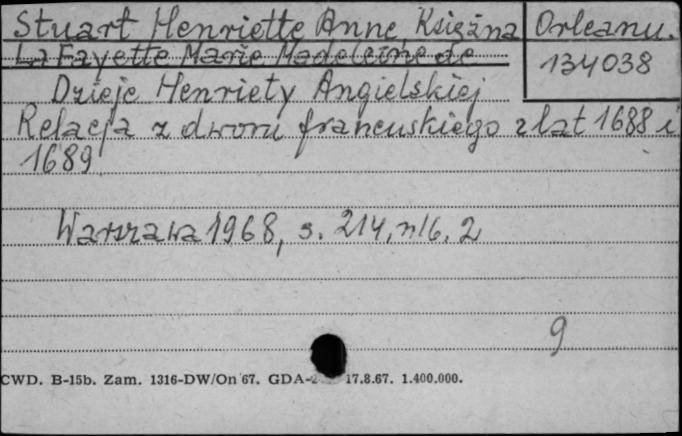 Stuart Henriette Anne, Księżna Orleanu.
La Fayette Marie Madeleine de
134038
Dzieje Henriety Angielskiej
Relacja z dworu francuskiego z lat 1688 i
1689
Warszawa 1968, s. 214, nlb. 2
9
CWD. B-15b. Zam. 1316-DW/On 67. GDA-2 17.8.67. 1.400.000.